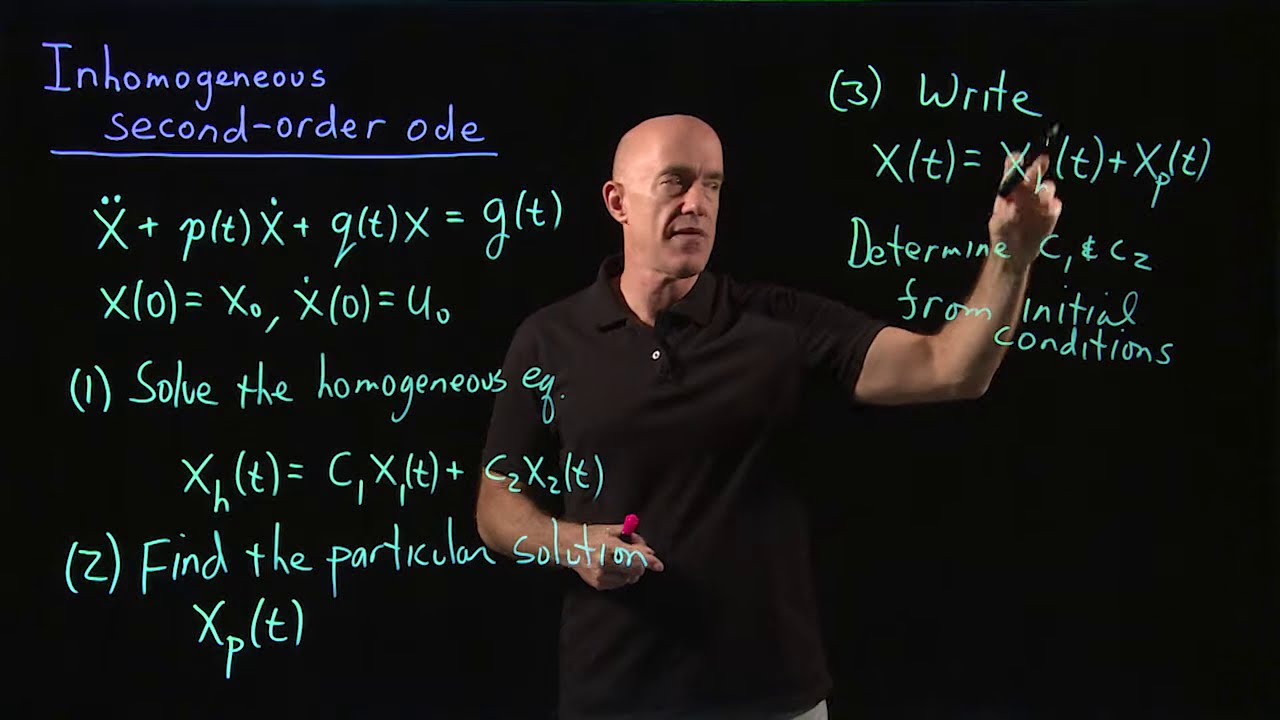 Inhomogeneous
second-order ode
ẍ + p(t)ẋ + q(t)x = g(t)
x(0) = x₀, ẋ(0) = u₀
(1) Solve the homogeneous eq.
xₕ(t) = c₁x₁(t) + c₂x₂(t)
(2) Find the particular solution
xₚ(t)
(3) Write
x(t) = xₕ(t) + xₚ(t)
Determine c₁ & c₂
from initial
conditions